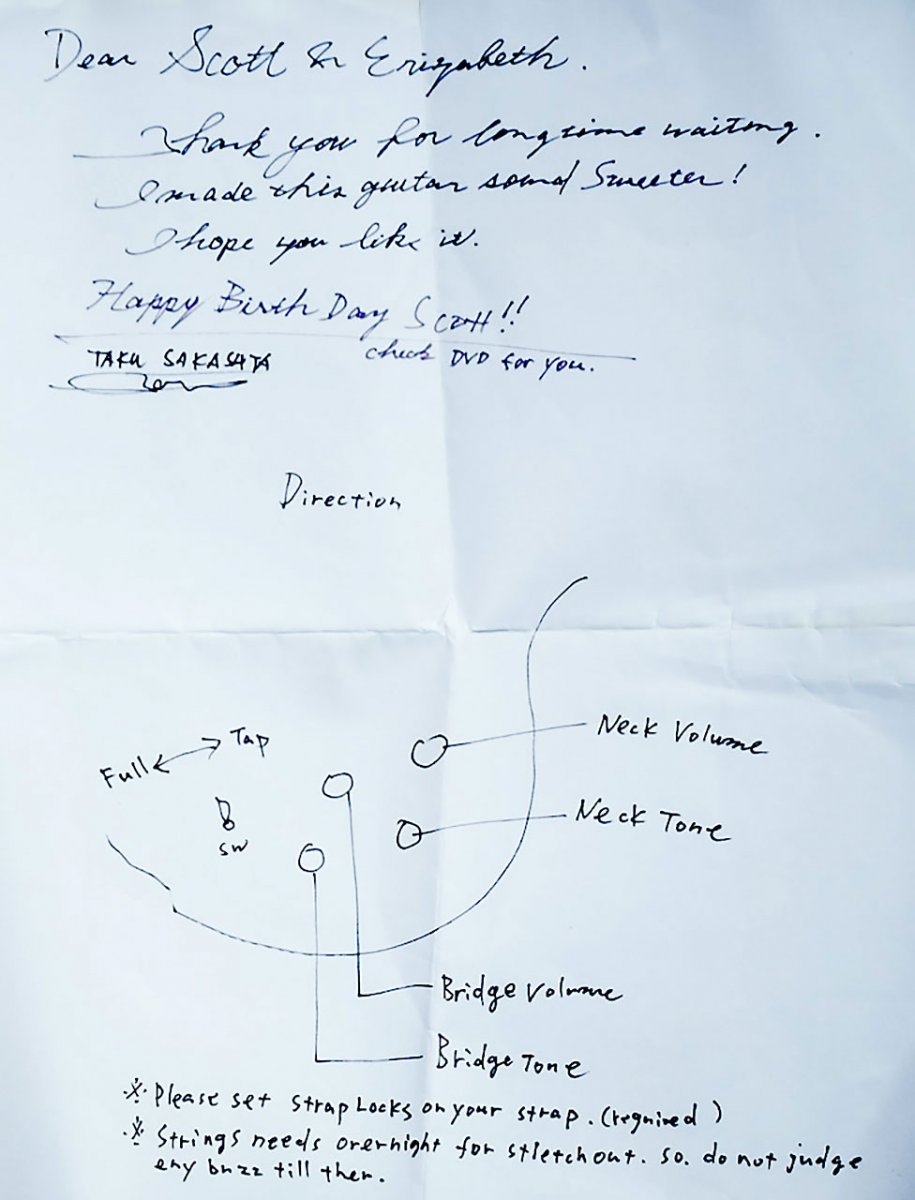 Dear Scott & Erizabeth.
Thank you for longtime waiting.
I made this guitar sound Sweeter!
I hope you like it.
Happy Birth Day Scott!!
TAKU SAKASHTA
check DVD for you.
Direction
Full ↔ Tap
SW
Neck Volume
Neck Tone
Bridge Volume
Bridge Tone
※ Please set strap Locks on your strap. (required)
※ Strings needs overnight for stletch out. so. do not judge
eny buzz till then.